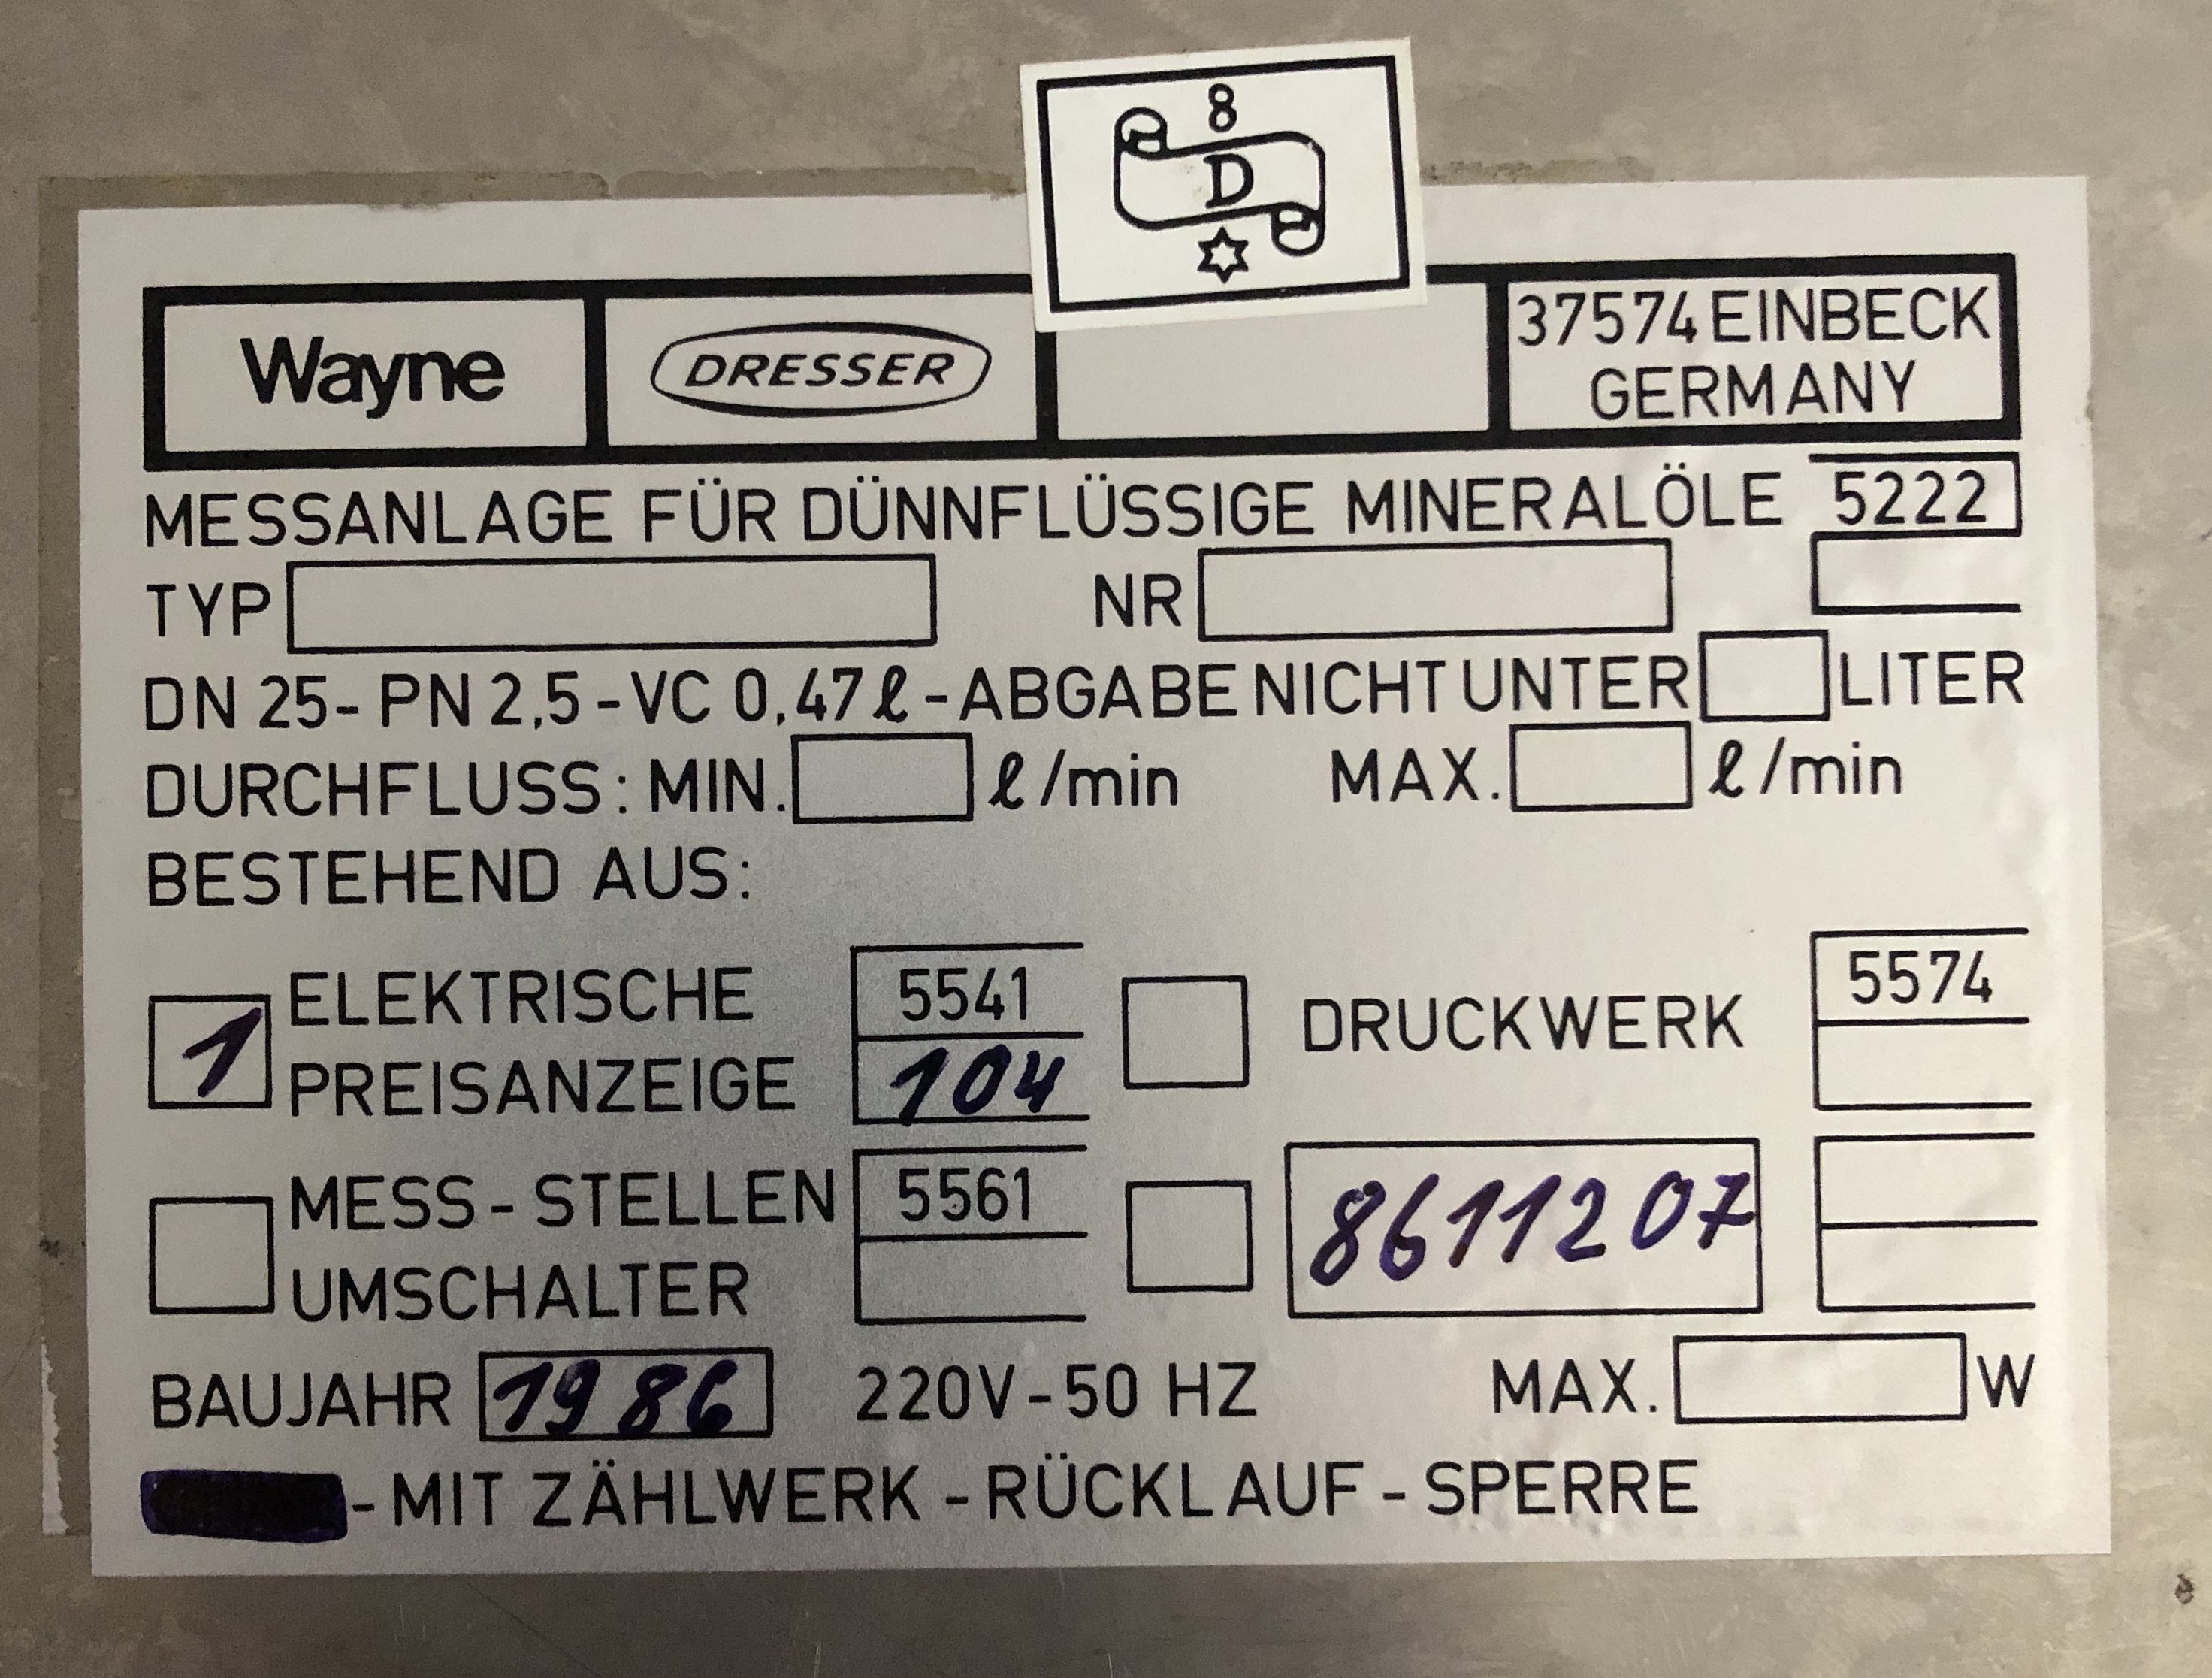 8
D
Wayne DRESSER 37574 EINBECK
GERMANY
MESSANLAGE FÜR DÜNNFLÜSSIGE MINERALÖLE 5222
TYP NR
DN 25 - PN 2,5 - VC 0,47 ℓ - ABGABE NICHT UNTER LITER
DURCHFLUSS: MIN. ℓ/min MAX. ℓ/min
BESTEHEND AUS:
1 ELEKTRISCHE PREISANZEIGE 5541 104
DRUCKWERK 5574
MESS-STELLEN UMSCHALTER 5561
8611207
BAUJAHR 1986 220V-50 HZ MAX. W
-MIT ZÄHLWERK-RÜCKLAUF-SPERRE